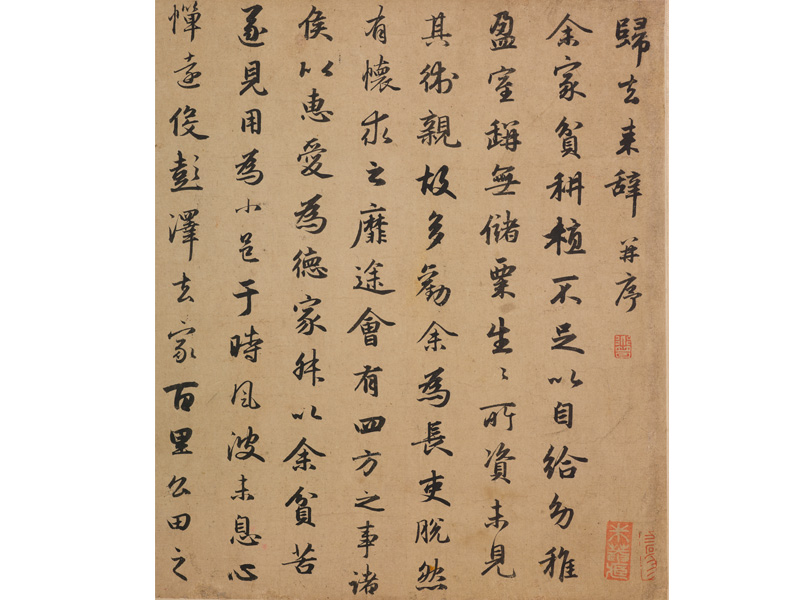 歸去来辞并序
余家貧耕植不足以自給幼稚
盈室缾無儲粟生〻所資未見
其術親故多勸余為長吏脱然
有懷求之靡途會有四方之事諸
侯以惠愛為德家叔以余貧苦
遂見用為小邑于時風波未息心
憚遠役彭澤去家百里公田之